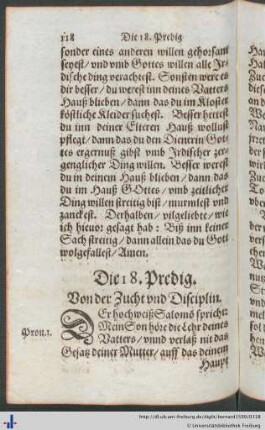 118 Die 18. Predig
sonder eines anderen willen gehorsam
seyest / vnd vmb Gottes willen alle Jr-
dische ding verachtest. Sonsten were es
dir besser / du werest inn deines Vatters
Hauß blieben / dann das du im Kloster
köstliche Kleider suchest. Besser hettest
du inn deiner Elteren Hauß wollust
pflegt / dann das du den Dienerin Got-
tes ergernuß gibst vmb Jrdischer zer-
genglicher Ding willen. Besser werest
du in deinem Hauß blieben / dann das
du im Hauß GOttes / vmb zeitlicher
Ding willen streitig bist / murmlest vnd
zanckest. Derhalben / vilgeliebte / wie
ich hieuor gesagt hab: Biß inn keiner
Sach streitig / dann allein das du Gott
wolgefallest / Amen.
Die 18. Predig.
Von der Zucht vnd Disciplin.
DEr hochweiß Salomō spricht:
Prou.1. Mein Son höre die Lehr deines
Vatters / vnnd verlaß nit das
Gesatz deiner Mutter / auff das deinem
Haupt
http://dl.ub.uni-freiburg.de/diglit/bernard1590/0138
© Universitätsbibliothek Freiburg